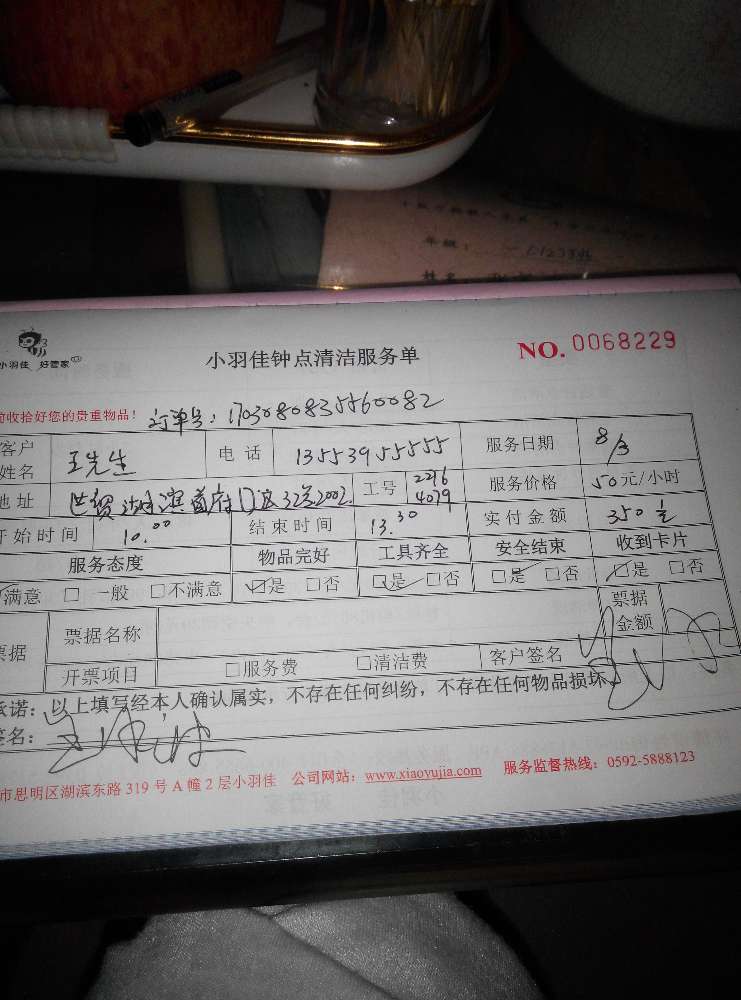 年级：
姓名：
小羽佳 好管家
小羽佳钟点清洁服务单
NO. 0068229
收拾好您的贵重物品！ 订单号：1703080835560082
客户姓名 王先生 电话 13553955555 服务日期 8/3
地址 世贸湖滨首府D区32号2002 工号 2216 4079 服务价格 50元/小时
开始时间 10.00 结束时间 13.30 实付金额 350
服务态度 物品完好 工具齐全 安全结束 收到卡片
满意 □一般 □不满意 □是 □否 □是 □否 □是 □否 □是 □否
票据名称 票据金额
开票项目 □服务费 □清洁费 客户签名
承诺：以上填写经本人确认属实，不存在任何纠纷，不存在任何物品损坏。
签名：
市思明区湖滨东路319号A幢2层小羽佳 公司网站：www.xiaoyujia.com 服务监督热线：0592-5888123